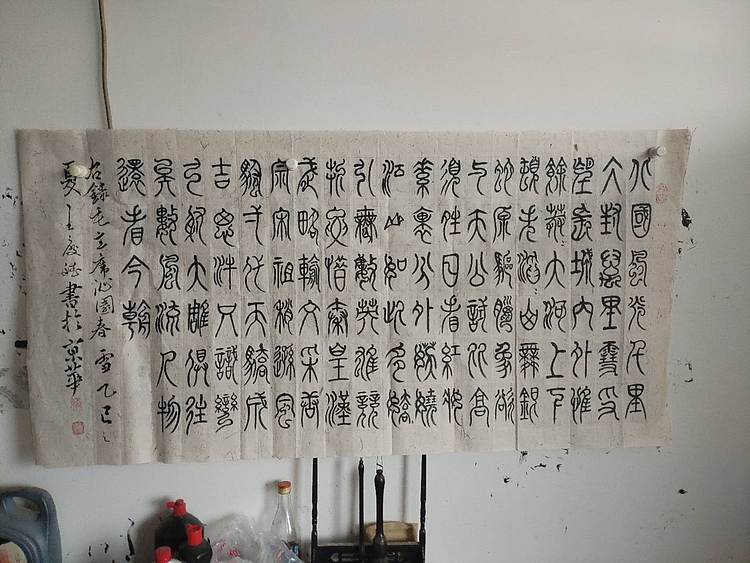 北國風光千里
冰封萬里雪飄
望長城內外惟
餘莽々大河上下
頓失滔々山舞銀
蛇原驅臘象欲
與天公試比高
須晴日看紅裝
素裹分外妖嬈
江山如此多嬌
引無數英雄競
折腰惜秦皇漢
武略輸文采唐
宗宋祖稍遜風
騷一代天驕成
吉思汗只識彎
弓射大雕俱往
矣數風流人物
還看今朝
右錄毛主席沁園春 雪 乙巳之
夏 王 書於京華